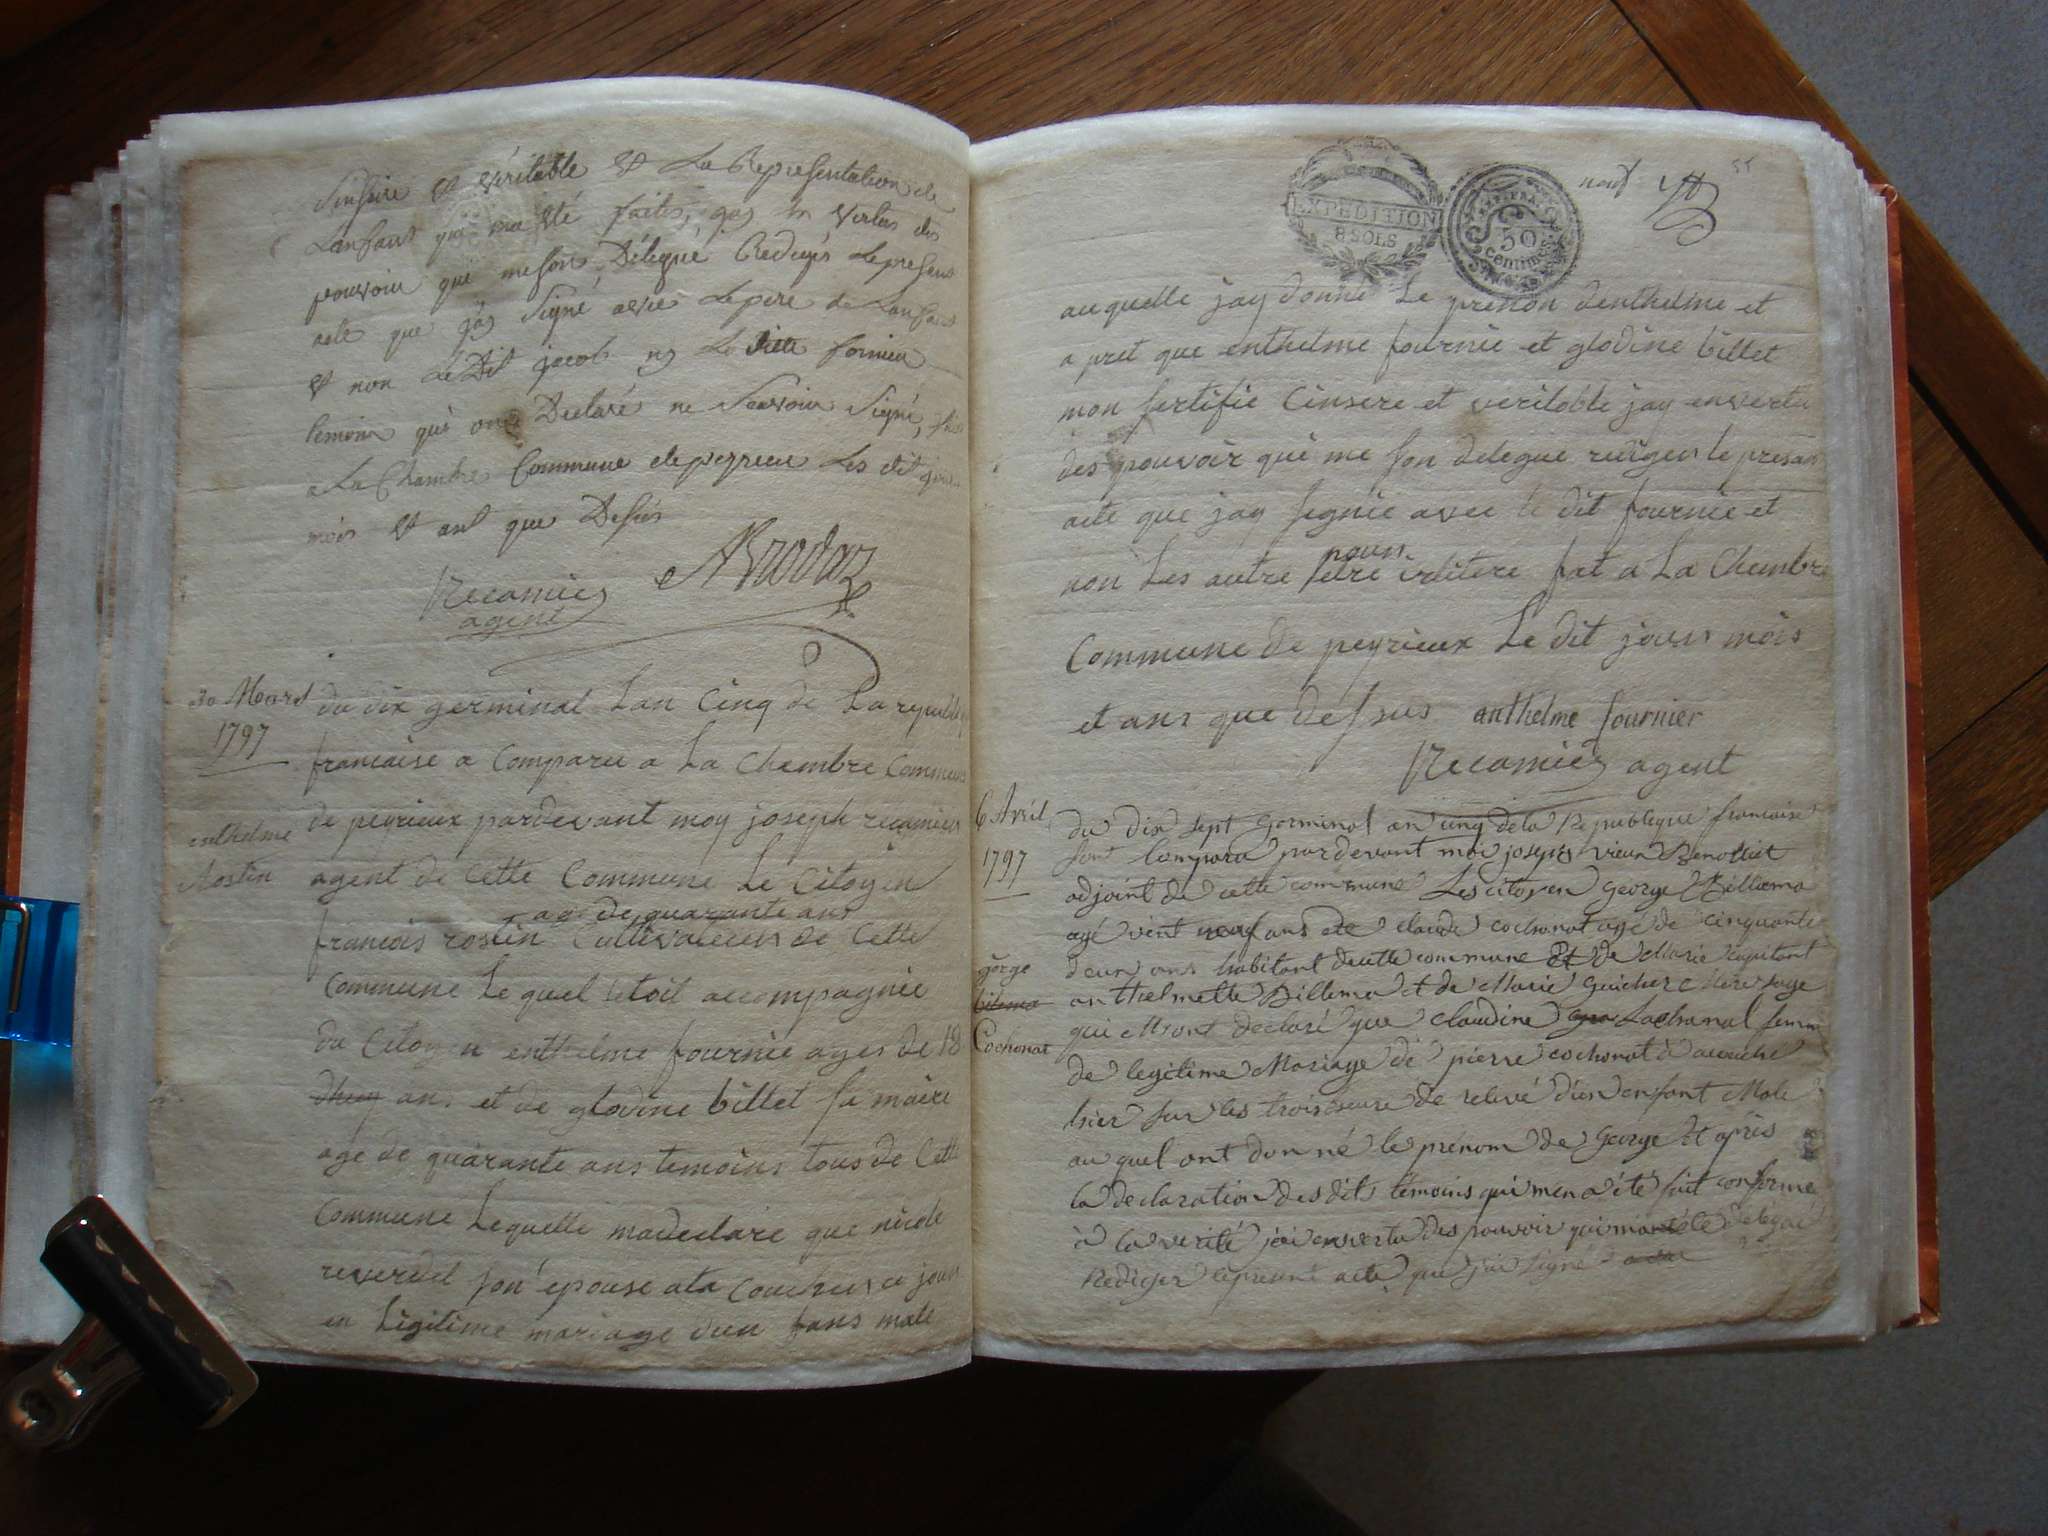 sinsaire et véritable et La Representation de
Lanfans qui ma été faites, jay en vertus des
pouvoirs qui me sons Délégué Redigés Le presens
acte que jay Signé avec Le pere de Lanfans
et non Le Dit jacob ny La ditte
temoins qui ons Declaré ne Scavoir Signé,
a La Chambre Commune de peyrieu Les dit jour
mois et ans que Desus
ABrodaz
Recamier
agent
30 Mars
1797
enthelme
Rostin
du dix germinal Lan Cinq de La republique
francaise a Comparu a La Chembre Commune
de peyrieux pardevant moy joseph recamier
agent de Cette Commune Le Citoyen
age de quarante ans
francois rostin Cultivateur de Cette
Commune Le quel setoit accompagnie
du Citoyen enthelme fournie ages de 18
ans et de glodine billet sa maire
age de quarante ans temoins tous de Cette
Commune Lequelle madeclaire que nicole
reverdel son epouse ata Coucher ce jour
en Légitime mariage dun fans male
EXPEDITION
8 SOLS
50
centimes
neuf
55
auquelle jay donné Le prenon denthelme et
a pret que enthelme fournie et glodine billet
mon sertifie Cinsere et veritable jay envertu
des pouvoir qui me son delegue reuiger le presan
acte que jay signie avec le dit fournie et
pour
non Les autre setre ilitere fet a La Chembre
Commune de peyrieux Le dit jour mois
et ans que dessus anthelme fournier
Recamier agent
6 Avril
1797
gorge
bilema
Cochonat
du dix sept Germinal an cinq dela Republique francaise
sont Compara pardevant moi joseph vieux Benollict
adjoint de cette commune Les citoyen George Billema
agé vint neuf ans et claude cochonat agé de cinquante
deux ans habitant decette commune Et de Marie capitant
anthelmette Billema et de Marie guicher Mere sage
qui Mont declaré que claudine Lachanal femme
de legitime Mariage de pierre cochonat à accouché
hier sur les trois heure de relevé d'un enfant Male
au quel ont donné le prénom de George Et après
la declaration des dits témoins qui men a été fait conforme
à la verité jai envertu des pouvoir qui mon été delegué
Rediger le present acte que jai signé avec